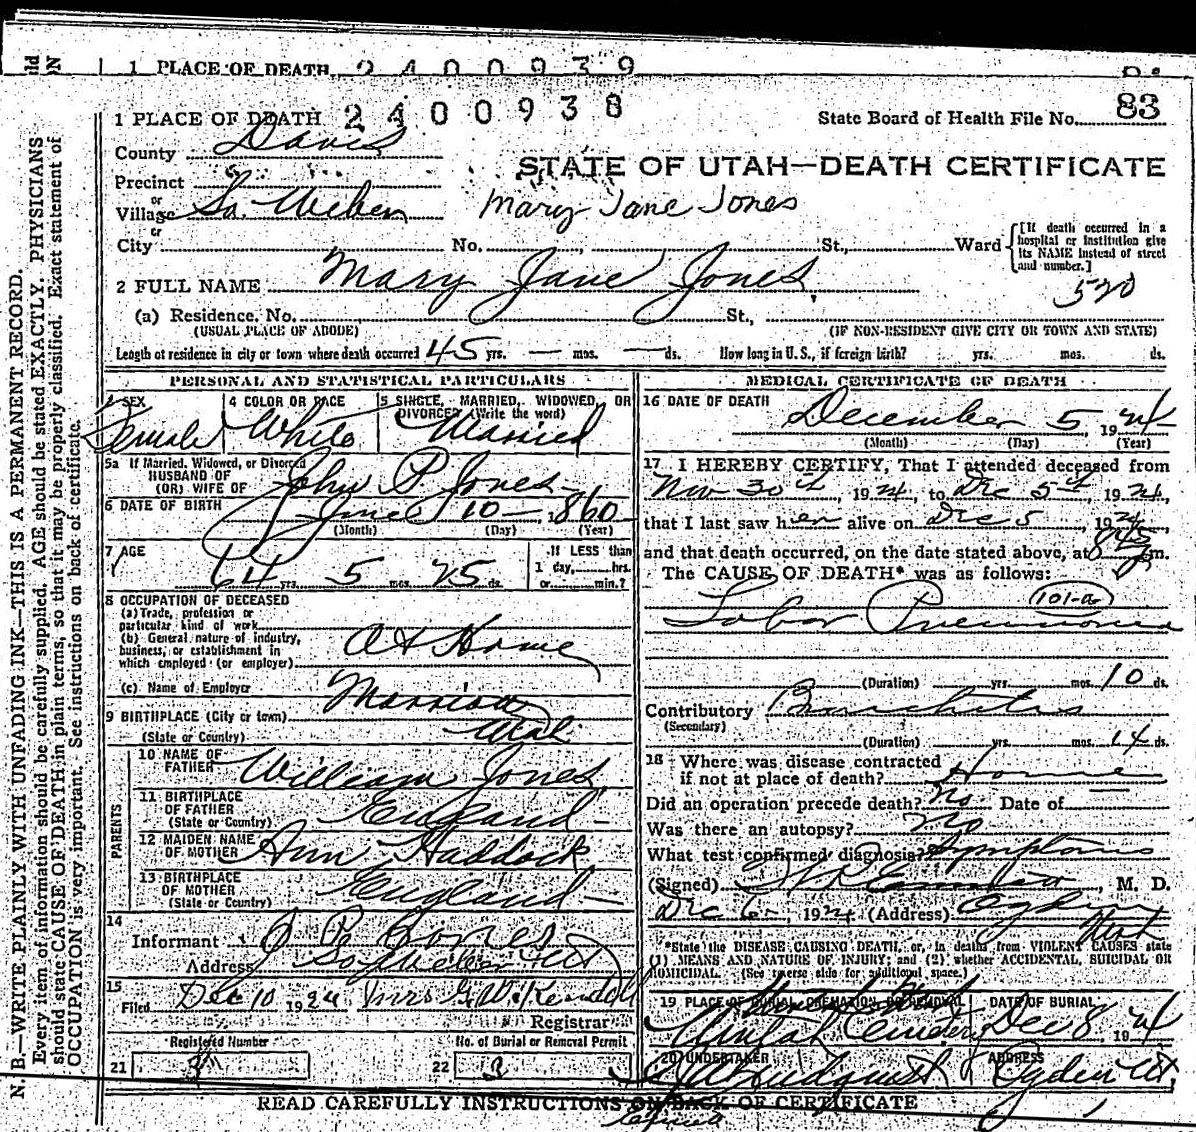 1 PLACE OF DEATH 2400939
1 PLACE OF DEATH 2400938
State Board of Health File No. 83
County Davis
STATE OF UTAH—DEATH CERTIFICATE
Precinct
or
Village So. Weber
Mary Jane Jones
or
City No. St., Ward
[If death occurred in a hospital or institution give its NAME instead of street and number.]
2 FULL NAME Mary Jane Jones
520
(a) Residence. No. St.,
(USUAL PLACE OF ABODE) (IF NON-RESIDENT GIVE CITY OR TOWN AND STATE)
Length of residence in city or town where death occurred 45 yrs. — mos. — ds. How long in U. S., if foreign birth? yrs. mos. ds.
PERSONAL AND STATISTICAL PARTICULARS
3 SEX
Female
4 COLOR OR RACE
White
5 SINGLE, MARRIED, WIDOWED, OR DIVORCED (Write the word)
Married
5a If Married, Widowed, or Divorced
HUSBAND OF
(OR) WIFE OF John P. Jones
6 DATE OF BIRTH June 10 — 1860
(Month) (Day) (Year)
7 AGE
64 yrs. 5 mos. 25 ds.
If LESS than
1 day, hrs.
or min.?
8 OCCUPATION OF DECEASED
(a) Trade, profession or
particular kind of work
(b) General nature of industry,
business, or establishment in
which employed (or employer) At Home
(c) Name of Employer
9 BIRTHPLACE (City or town) Marriott
(State or Country) Utah
PARENTS
10 NAME OF
FATHER William Jones
11 BIRTHPLACE
OF FATHER England
(State or Country)
12 MAIDEN NAME
OF MOTHER Ann Haddock
13 BIRTHPLACE
OF MOTHER England
(State or Country)
14
Informant J P Jones
Address So. Weber Ut
15
Filed Dec 10 1924, Mrs G. W. Kendell
Registrar
Registered Number
21 3
No. of Burial or Removal Permit
22 3
MEDICAL CERTIFICATE OF DEATH
16 DATE OF DEATH
December 5, 1924
(Month) (Day) (Year)
17 I HEREBY CERTIFY, That I attended deceased from
Nov 30th, 1924, to Dec 5th, 1924,
that I last saw her alive on Dec 5, 1924,
and that death occurred, on the date stated above, at 8 45 m.
The CAUSE OF DEATH* was as follows:
101-a
Lobar Pneumonia
(Duration) yrs. mos. 10 ds.
Contributory Bronchitis
(Secondary)
(Duration) yrs. mos. 14 ds.
18 Where was disease contracted
if not at place of death? Home
Did an operation precede death? No Date of
Was there an autopsy? No
What test confirmed diagnosis? Symptoms
(Signed) , M. D.
Dec 6, 1924 (Address) Ogden
Utah
*State the DISEASE CAUSING DEATH, or, in deaths from VIOLENT CAUSES state
(1) MEANS AND NATURE OF INJURY; and (2) whether ACCIDENTAL, SUICIDAL OR
HOMICIDAL. (See reverse side for additional space.)
19 PLACE OF BURIAL, CREMATION, OR REMOVAL
Uintah Cemetery
DATE OF BURIAL
Dec 8, 1924
20 UNDERTAKER
Lindquist
ADDRESS
Ogden Ut
READ CAREFULLY INSTRUCTIONS ON BACK OF CERTIFICATE
N. B.—WRITE PLAINLY WITH UNFADING INK—THIS IS A PERMANENT RECORD.
Every item of information should be carefully supplied. AGE should be stated EXACTLY. PHYSICIANS
should state CAUSE OF DEATH in plain terms, so that it may be properly classified. Exact statement of
OCCUPATION is very important. See instructions on back of certificate.